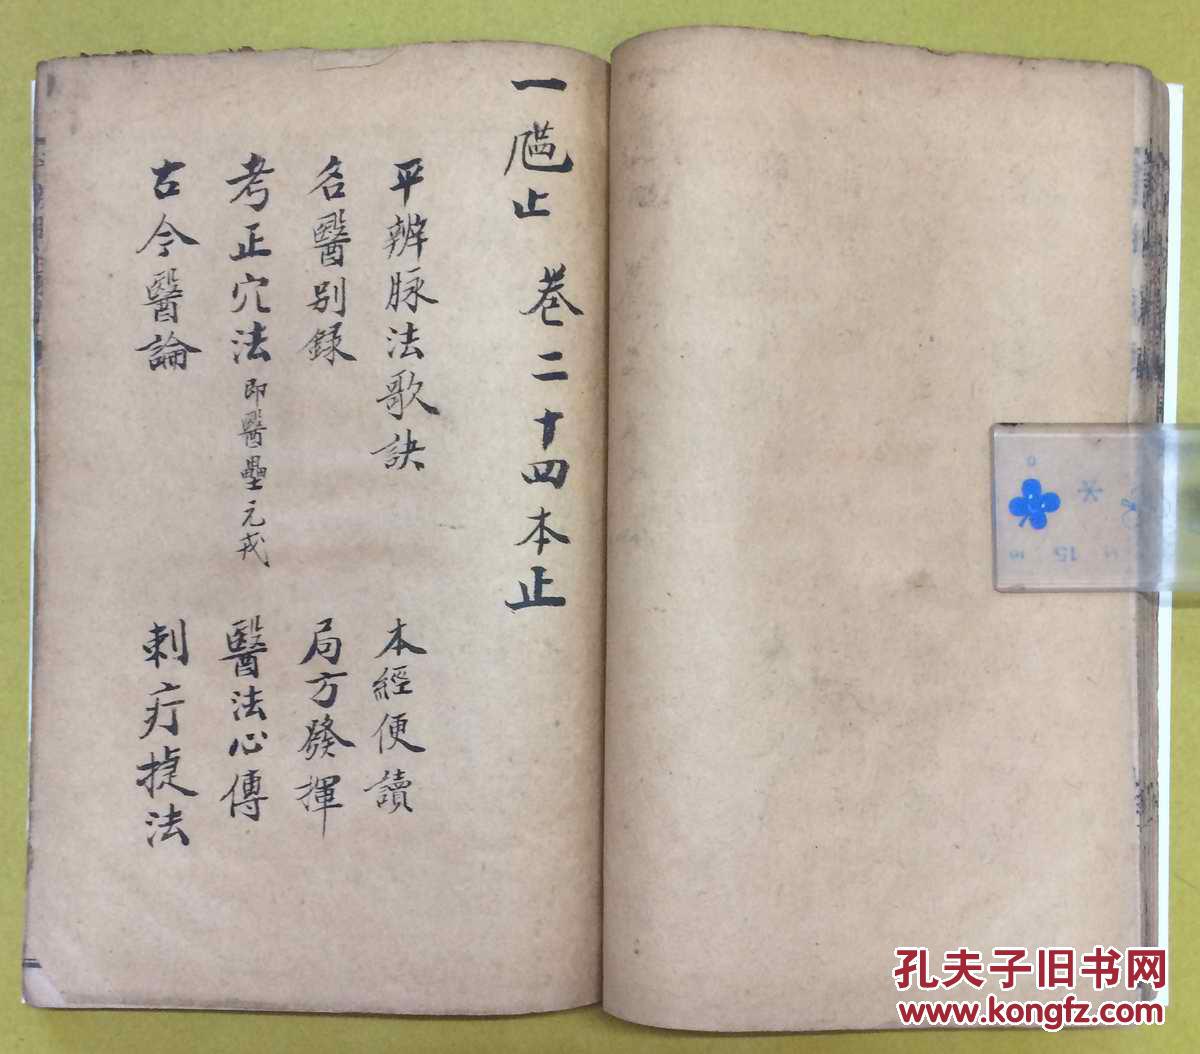 一 止 卷二十四本止
平辨脉法歌訣 本經便讀
名醫別録 局方發揮
考正穴法 即醫壘元戎 醫法心傳
古今醫論 刺疔捷法
0
16 15 14
孔夫子旧书网
www.kongfz.com